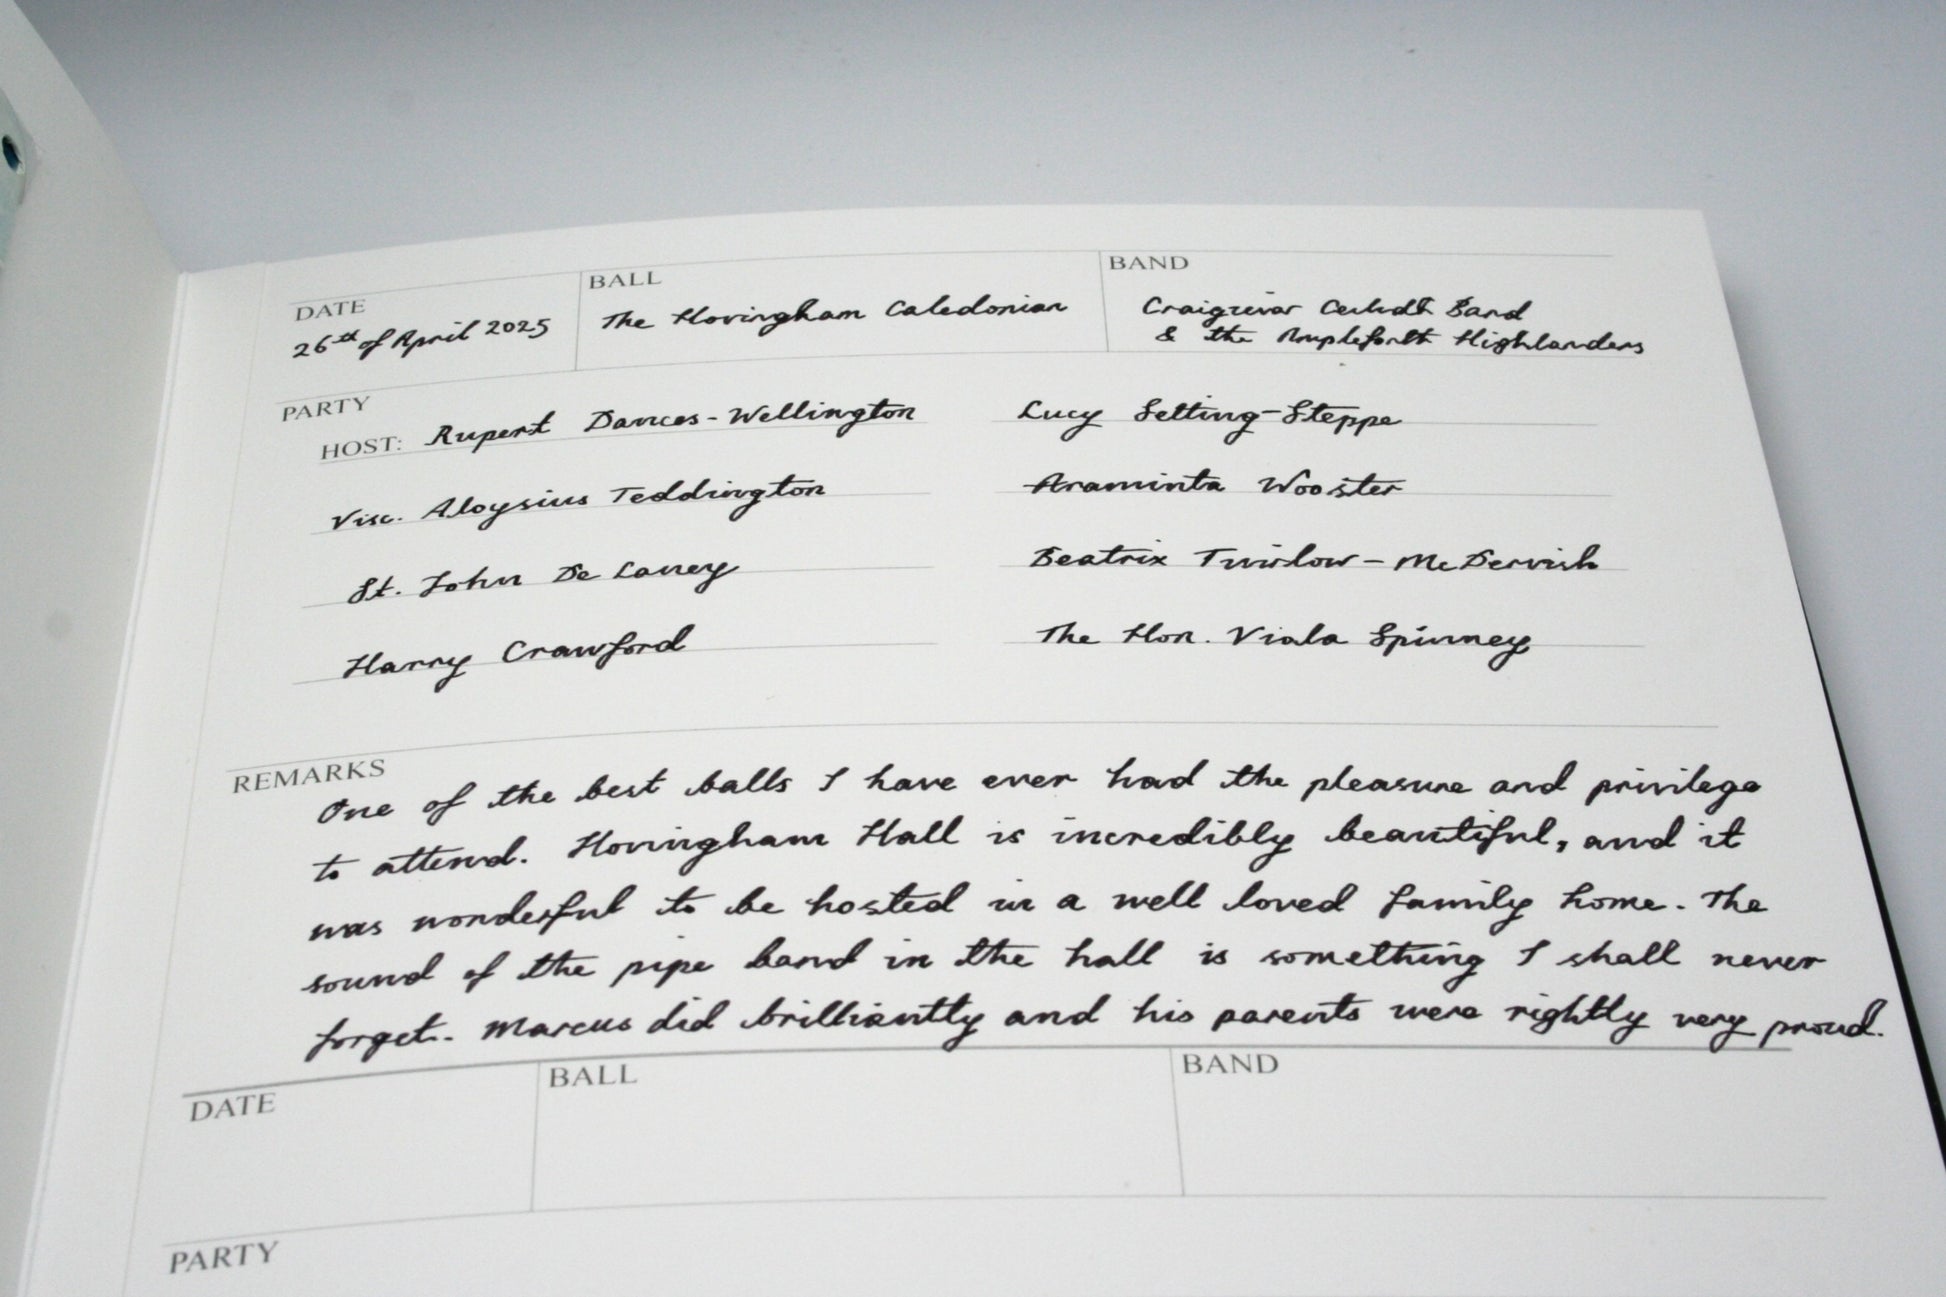 DATE BALL BAND
26th of April 2025 The Hovingham Caledonian Craigievar Ceilidh Band
& the Ampleforth Highlanders
PARTY
HOST: Rupert Dances-Wellington Lucy Setting-Steppe
Visc. Aloysius Teddington Araminta Wooster
St. John De Laney Beatrix Twirlow-McDervish
Harry Crawford The Hon. Viola Spinney
REMARKS
One of the best balls I have ever had the pleasure and privilege
to attend. Hovingham Hall is incredibly beautiful, and it
was wonderful to be hosted in a well loved family home. The
sound of the pipe band in the hall is something I shall never
forget. Marcus did brilliantly and his parents were rightly very proud.
DATE BALL BAND
PARTY